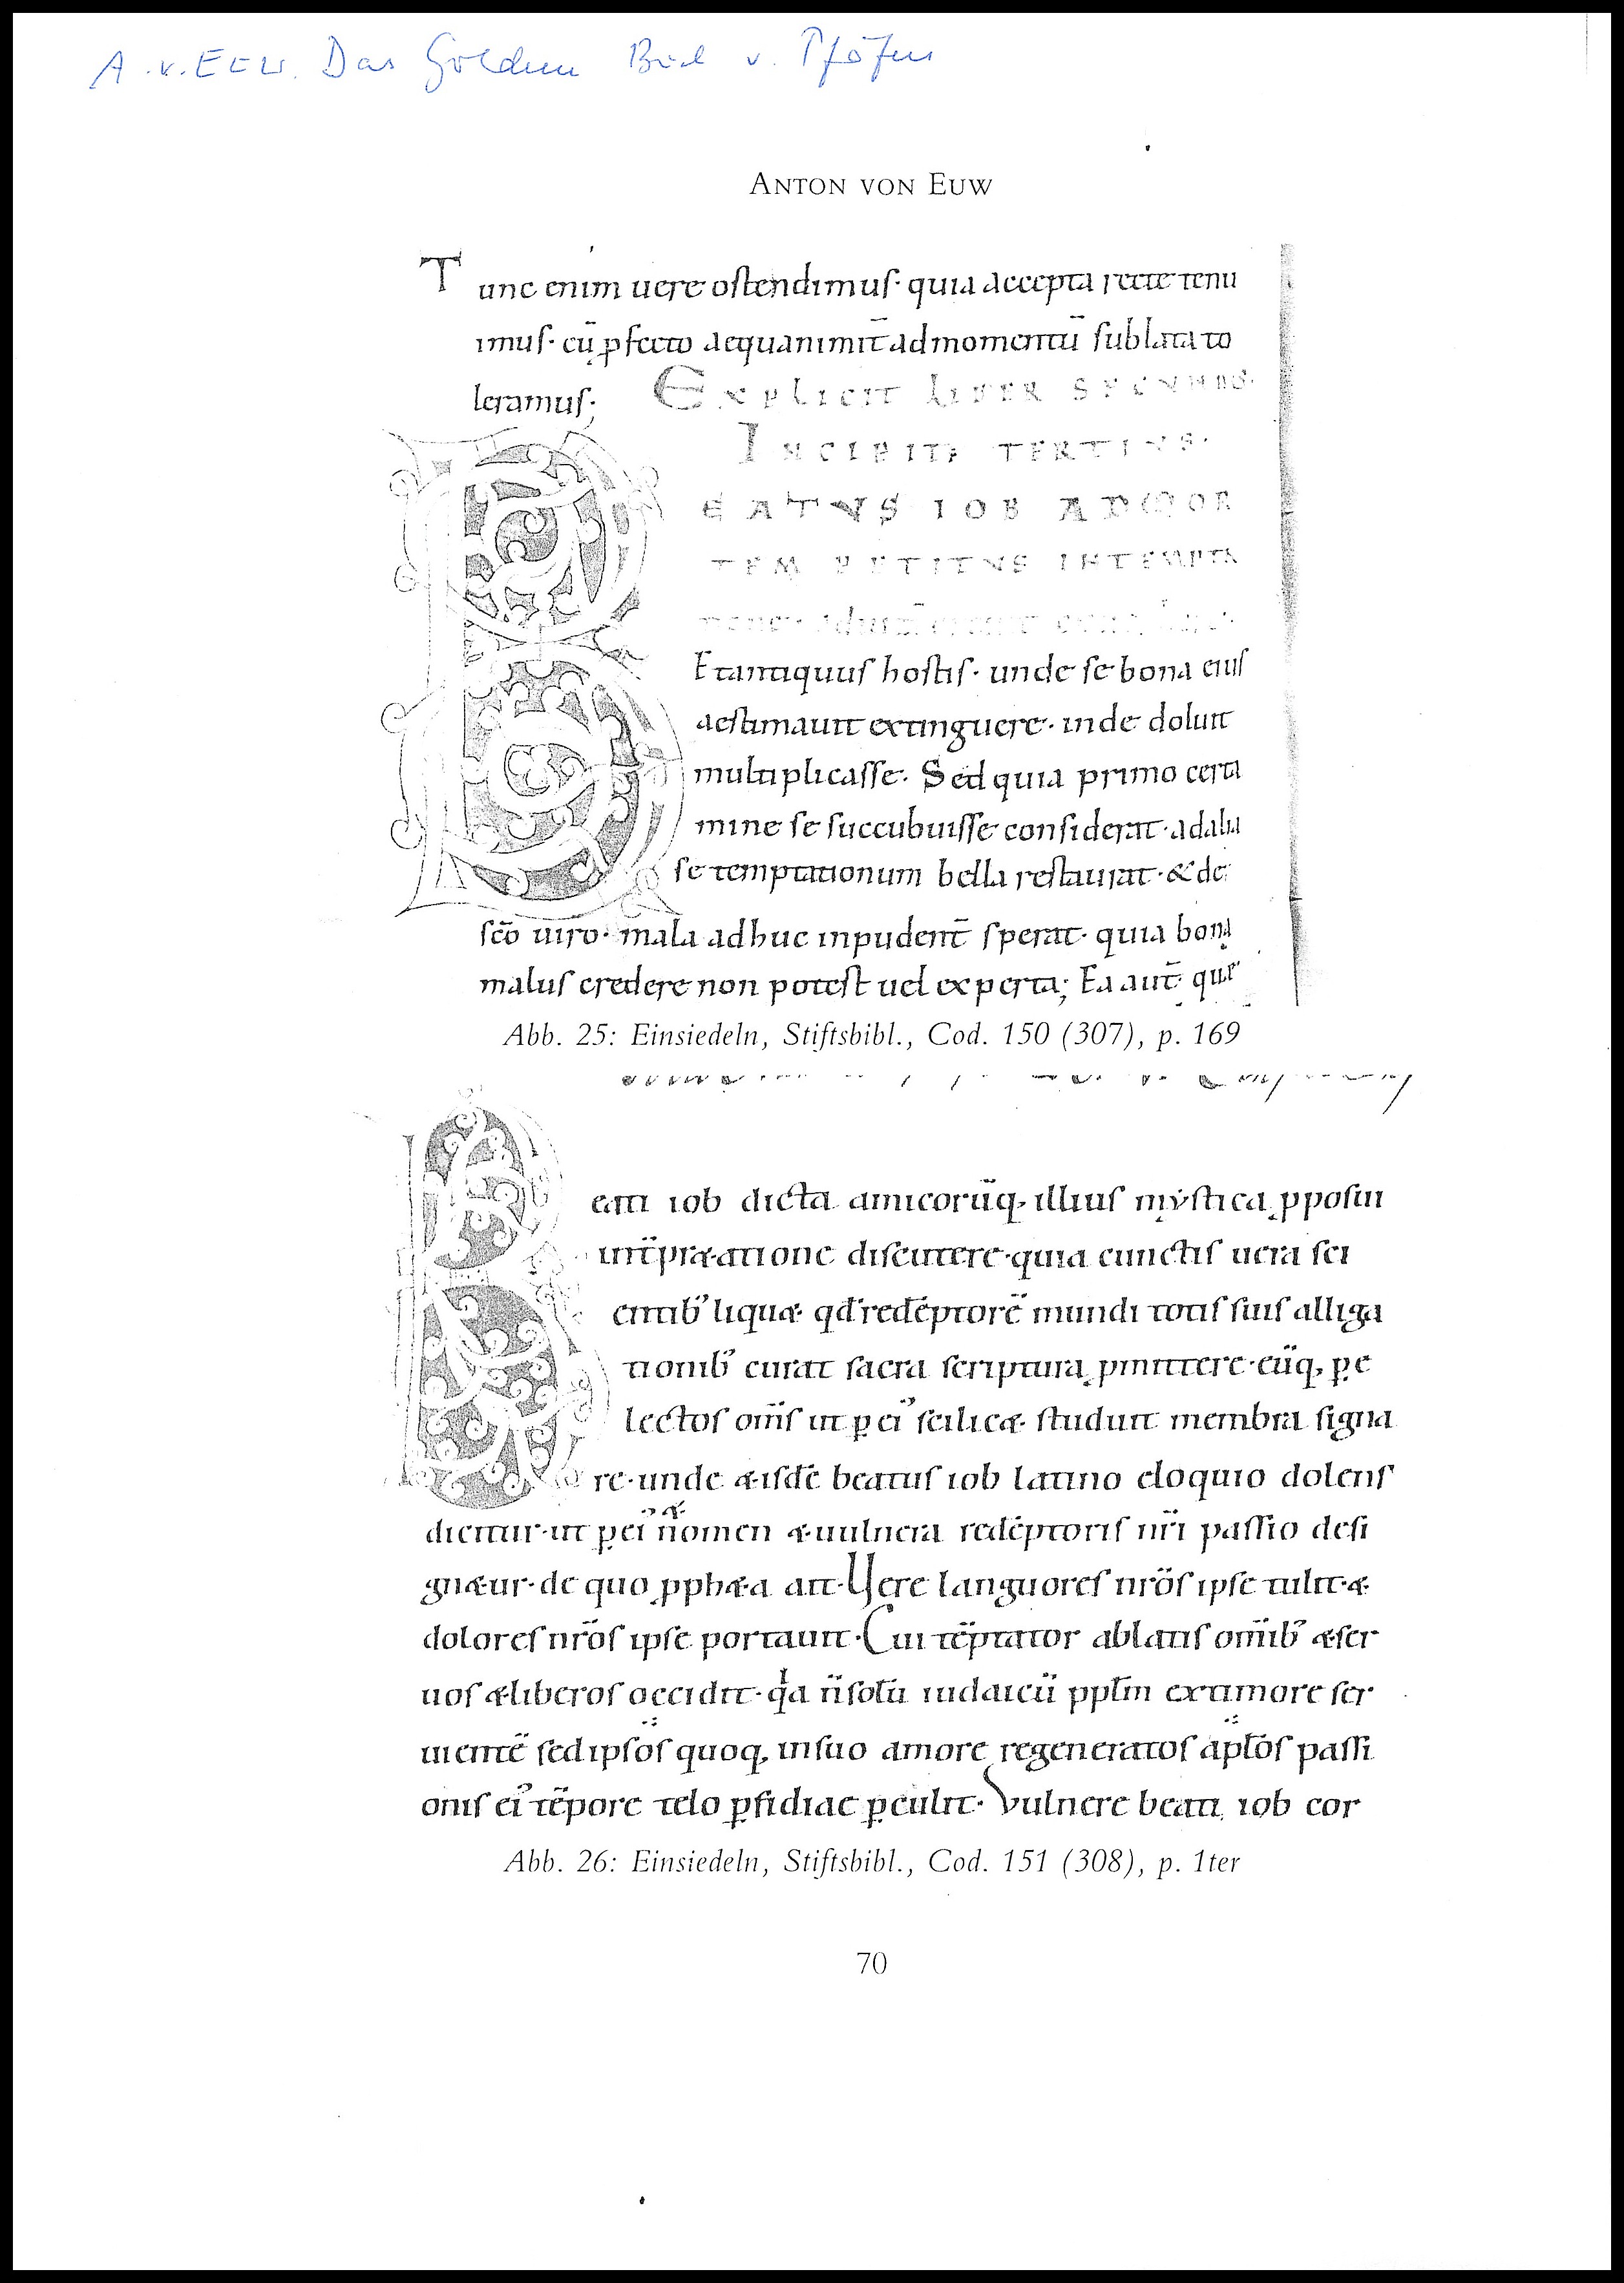 A. v. Euw. Das Goldene Buch v. Pfäfers
ANTON VON EUW
Tunc enim uere ostendimus· quia accepta recte tenu
imus· cū ꝑfecto aequanimit̄ ad momentū sublata to
leramus; EXPLICIT LIBER SECVNDUS·
INCIPIT TERTIVS·
BEATVS IOB AD MOR
TEM PETITVS IN TEMPTA
Et antiquus hostis· unde se bona eius
aestimauit extinguere· inde doluit
multiplicasse· Sed quia primo certa
mine se succubuisse considerat· ad alia
se temptationum bella restaurat· & de
sc̄o uiro· mala adhuc inpudent̄ sperat· quia bona
malus credere non potest uel experta; Ea aut̄ que
Abb. 25: Einsiedeln, Stiftsbibl., Cod. 150 (307), p. 169
Beati iob dicta amicorūq, illius mẏstica ꝓposui
int̄prætatione discutere· quia cunctis uera sci
entib' liquæt qđ redēptorē mundi totis suis alliga
tionib' curat sacra scriptura ꝓmittere· eūq, ꝑ e
lectos om̄s ut ꝑ ei' scilicæt studuit membra signa
re· unde & isdē beatus iob latino eloquio dolens
dicitur· ut ꝑ ei' &̄ nomen & uulnera redēptoris nr̄i passio desi
gnætur· de quo ꝓphæta ait· Vere languores nrōs ipse tulit· &
dolores nrōs ipse portauit· Cui tēptator ablatis om̄ib' & ser
uos & liberos occidit· qa n̄ solū iudaicū pplm̄ ex timore ser
uientē sed ipsos quoq, in suo amore regeneratos aptōs passi
onis ei' tēpore telo ꝑfidiae ꝑculit· Vulnere beati iob cor
Abb. 26: Einsiedeln, Stiftsbibl., Cod. 151 (308), p. 1ter
70